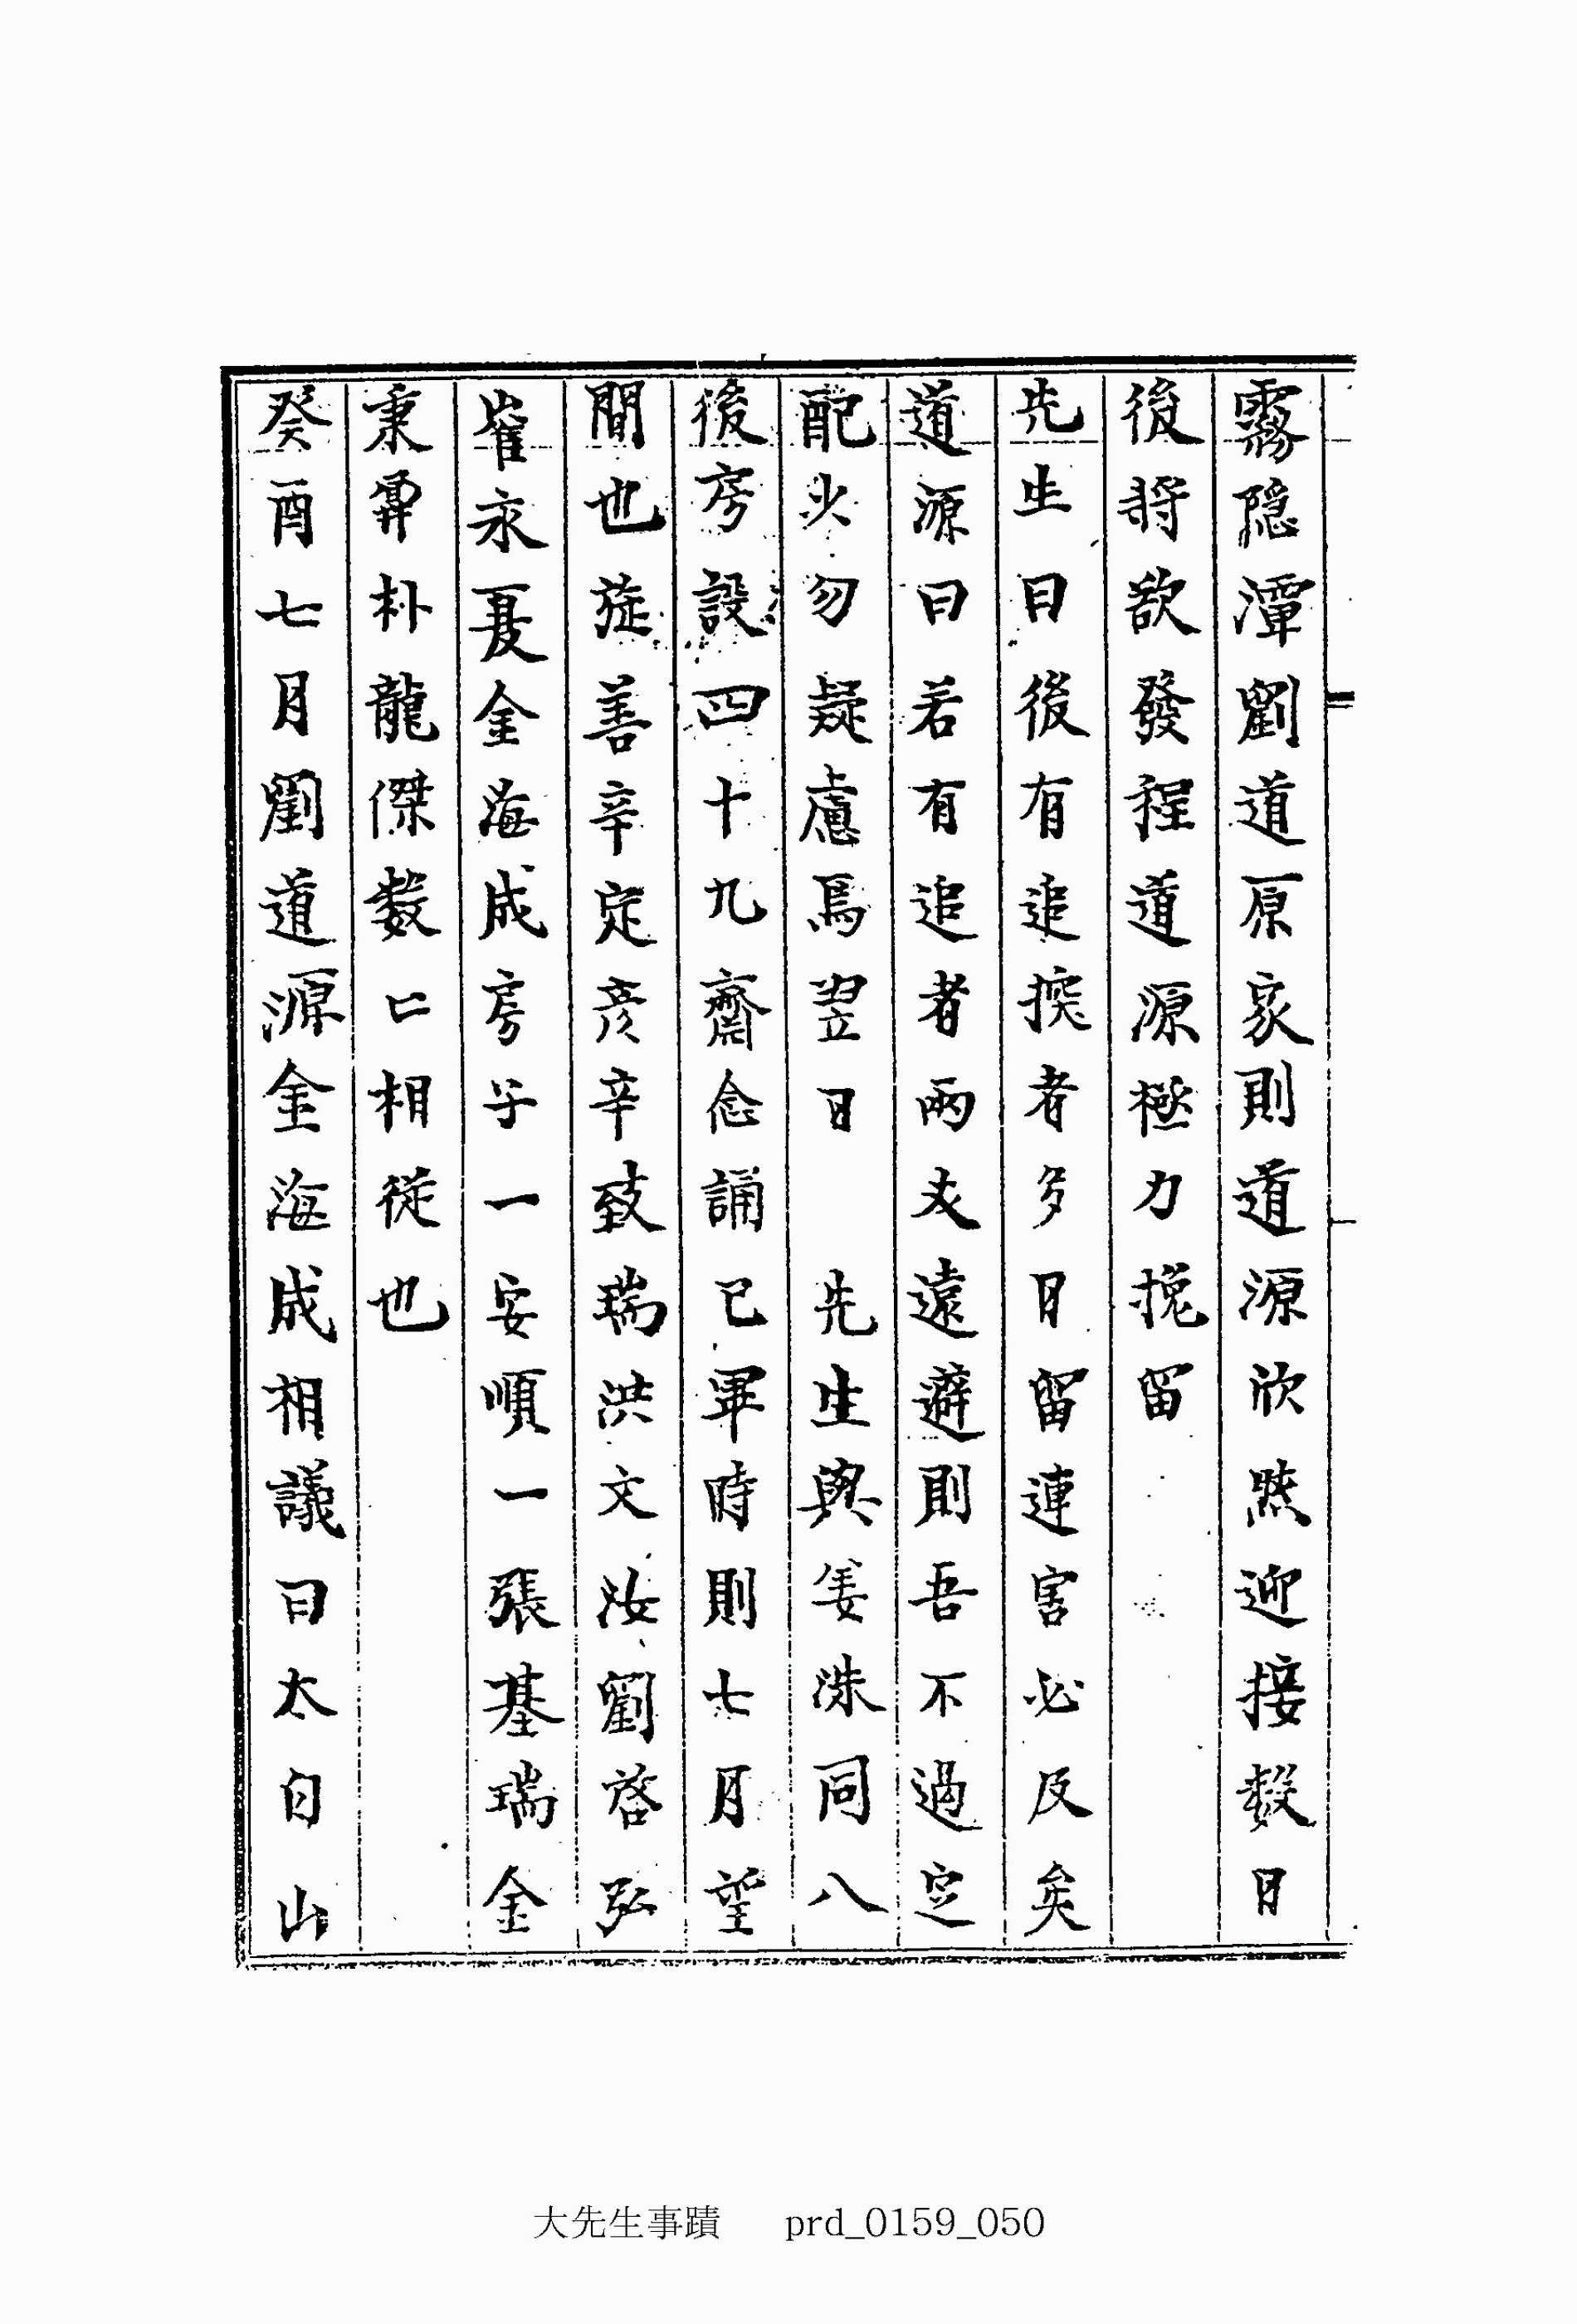 霧隱潭劉道原家則道源欣然迎接数日
後將欲發程道源極力挽留
先生曰後有追捉者多日留連害必及矣
道源曰若有追者兩夫遠避則吾不過定
配少勿疑慮焉翌日 先生與姜洙同八
後房設四十九齋念誦已畢時則七月望
間也旋善辛定彦辛致瑞洪文汝劉啓弘
崔永夏金海成房子一安順一張基瑞金
秉鼐朴龍傑数匕相從也
癸酉七月劉道源金海成相議曰太白山
大先生事蹟 prd_0159_050